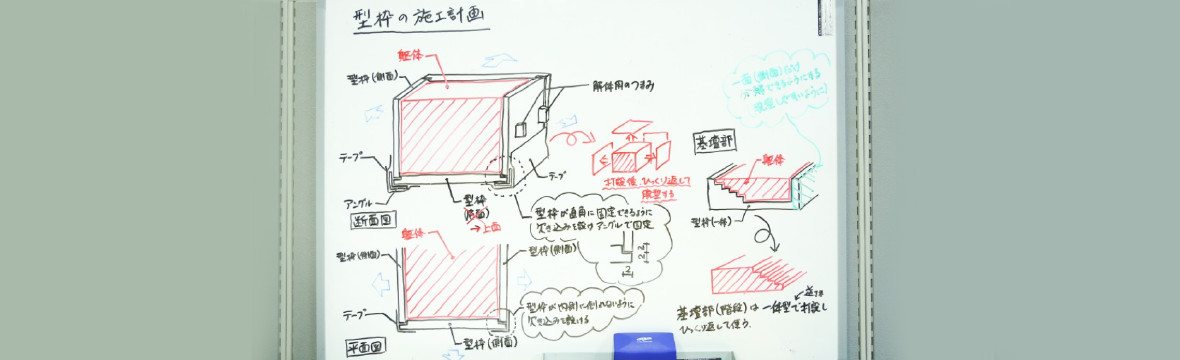 型枠の施工計画
躯体
型枠(側面)
解体用のつまみ
テープ
テープ
アングル
型枠
(底面)
→上面
断面図
打設後、ひっくり返して
脱型する
型枠が直角に固定できるように
欠き込みを設けアングルで固定
躯体
型枠(側面)
型枠(側面)
テープ
型枠が内側に倒れないように
欠き込みを設ける
型枠(側面)
平面図
一面(側面)だけ
分解できるようにする
基壇部
躯体
型枠(一体)
基壇部(階段)は 一体型で打設し
ひっくり返して使う.